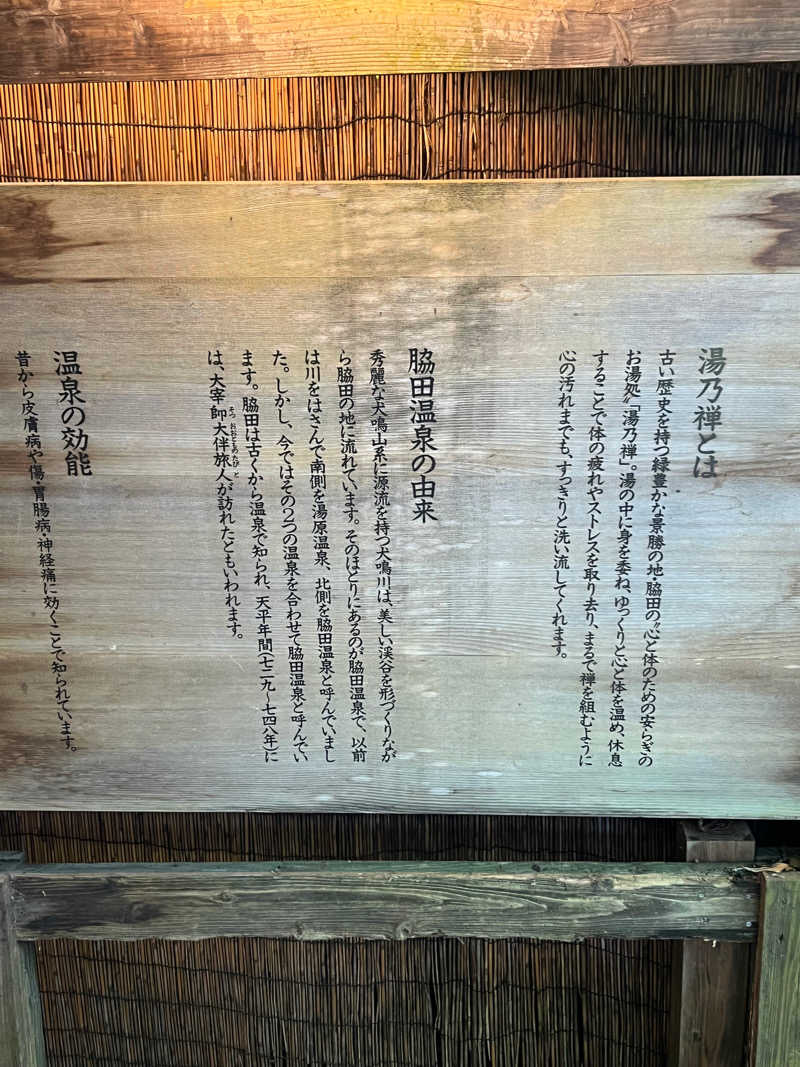 湯乃禅とは
古い歴史を持つ緑豊かな景勝の地・脇田の〝心と体のための安らぎの
お湯処〟「湯乃禅」。湯の中に身を委ね、ゆっくりと心と体を温め、休息
することで体の疲れやストレスを取り去り、まるで禅を組むように
心の汚れまでも、すっきりと洗い流してくれます。
脇田温泉の由来
秀麗な犬鳴山系に源流を持つ犬鳴川は、美しい渓谷を形づくりなが
ら脇田の地に流れています。そのほどりにあるのが脇田温泉で、以前
は川をはさんで南側を湯原温泉、北側を脇田温泉と呼んでいまし
た。しかし、今ではその2つの温泉を合わせて脇田温泉と呼んでい
ます。脇田は古くから温泉で知られ、天平年間(七二九〜七四八年)に
は、大宰帥大伴旅人が訪れたともいわれます。
そつ おおとものたびと
温泉の効能
昔から皮膚病や傷・胃腸病・神経痛に効くことで知られています。